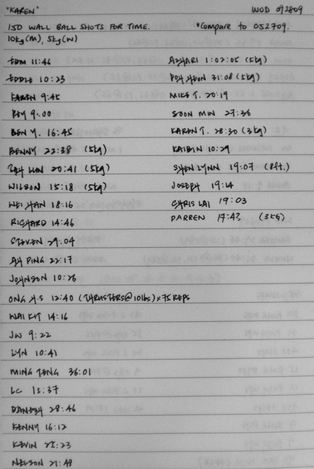 "KAREN" WOD 092809
150 WALL BALL SHOTS FOR TIME. *Compare to 052709.
10kg(M), 5kg(W)
TOM 11:46
EDDIE 10:23
FAREN 9:45
ROY 9:00
BEN Y. 16:45
BENNY 22:38 (5kg)
20:41 (5kg)
WILSON 15:18 (5kg)
WEI HAN 18:16
RICHARD 14:46
STEVEN 29:04
AH PING 22:17
JOHNSON 10:26
ONG H.S 12:40 (THRUSTERS@101bs) x 75 REPS
WAI KIT 14:16
JW 9:22
LYN 10:41
MING TENG 36:01
LC 15:37
DANESH 28:46
KENNY 16:12
KEVIN 25:23
NELSON 21:48
AZHARI 1:02:05 (5kg)
31:08 (5kg)
MIKE T. 20:19
SOON MIN 27:36
KAREN T. 28:30 (3kg)
KAIBIN 10:29
SHEN LYNN 19:07 (8ft.)
JOSEPH 19:14
CHRIS LAI 19:03
DARREN 17:43